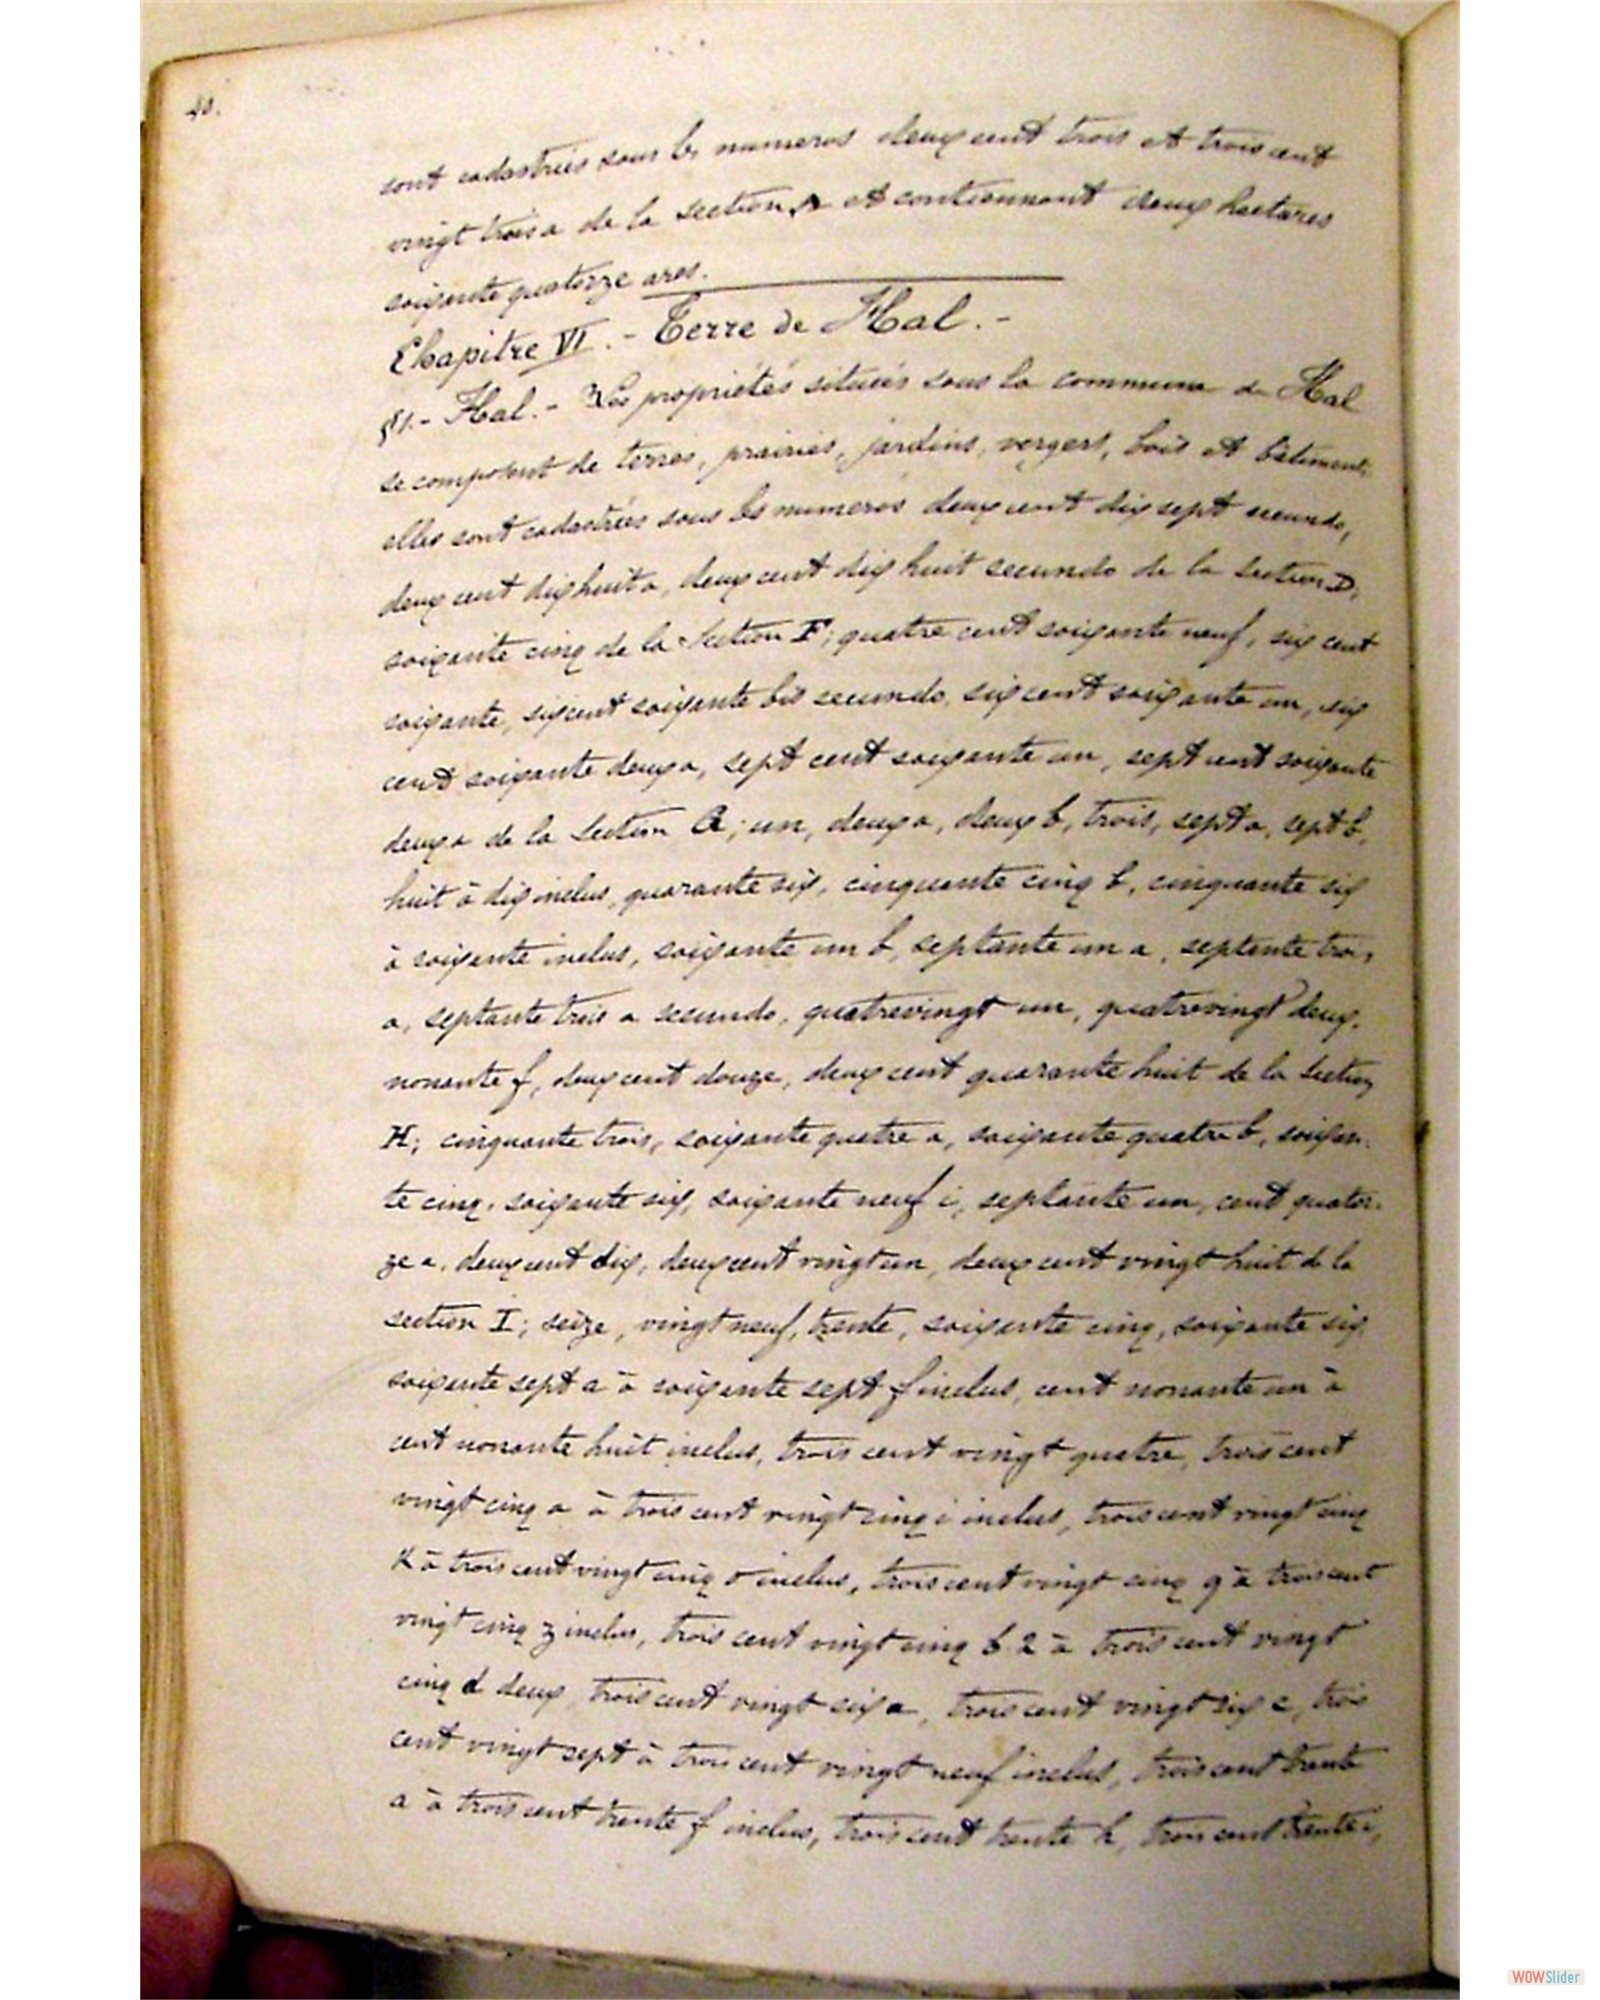 40.
sont cadastrées sous les numeros deux cent trois et trois cent
vingt trois a de la section A et contiennent deux hectares
soixante quatorze ares.
Chapitre VI. - Terre de Hal. -
§1. - Hal. - Les propriétés situées sous la commune de Hal
se composent de terres, prairies, jardins, vergers, bois et bâtiments
elles sont cadastrées sous les numeros deux cent dix sept secundo,
deux cent dix huit a, deux cent dix huit secundo de la section D,
soixante cinq de la Section F; quatre cent soixante neuf, six cent
soixante, six cent soixante bis secundo, six cent soixante un, six
cent soixante deux a, sept cent soixante un, sept cent soixante
deux a de la Section G; un, deux a, deux b, trois, sept a, sept b,
huit à dix inclus, quarante six, cinquante cinq b, cinquante six
à soixante inclus, soixante un b, septante un a, septante trois
a, septante trois a secundo, quatrevingt un, quatrevingt deux,
nonante f, deux cent douze, deux cent quarante huit de la Section
H; cinquante trois, soixante quatre a, soixante quatre b, soixan-
te cinq, soixante six, soixante neuf i, septante un, cent quator-
ze a, deux cent dix, deux cent vingt un, deux cent vingt huit de la
section I; seize, vingt neuf, trente, soixante cinq, soixante six
soixante sept a à soixante sept f inclus, cent nonante un à
cent nonante huit inclus, trois cent vingt quatre, trois cent
vingt cinq a à trois cent vingt cinq i inclus, trois cent vingt cinq
K à trois cent vingt cinq o inclus, trois cent vingt cinq q à trois cent
vingt cinq z inclus, trois cent vingt cinq b 2 à trois cent vingt
cinq d deux, trois cent vingt six a, trois cent vingt six c, trois
cent vingt sept à trois cent vingt neuf inclus, trois cent trente
a à trois cent trente f inclus, trois cent trente h, trois cent trente i,
WOWSlider